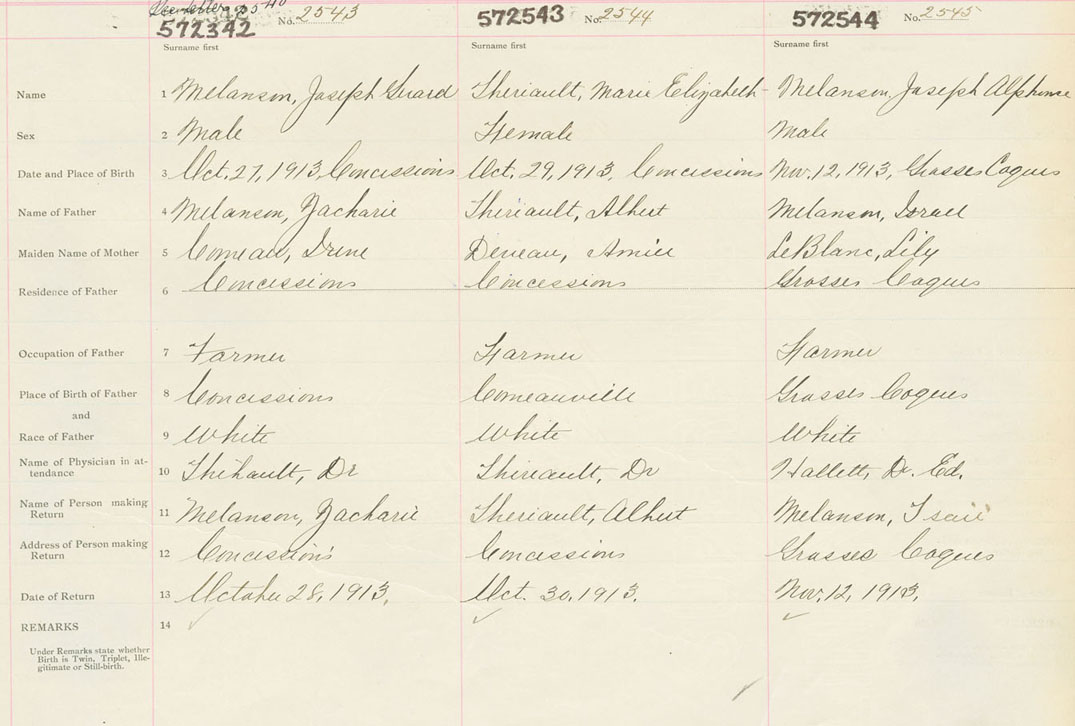 572342 No. 2543 572543 No. 2544 572544 No. 2545
Surname first Surname first Surname first
Name 1 Melanson, Joseph Guard Theriault, Marie Elizabeth Melanson, Joseph Alphonse
Sex 2 Male Female Male
Date and Place of Birth 3 Oct. 27, 1913, Concessions Oct. 29, 1913, Concessions Nov. 12, 1913, Grosses Coques
Name of Father 4 Melanson, Zacharie Theriault, Albert Melanson, Israel
Maiden Name of Mother 5 Comeau, Irene Deveau, LeBlanc, Lily
Residence of Father 6 Concessions Concessions Grosses Coques
Occupation of Father 7 Farmer Farmer Farmer
Place of Birth of Father 8 Concessions Comeauville Grosses Coques
and
Race of Father 9 White White White
Name of Physician in at-
tendance 10 Thibault, Dr Theriault, Dr Hallett, Dr. Ed.
Name of Person making
Return 11 Melanson, Zacharie Theriault, Albert Melanson,
Address of Person making
Return 12 Concessions Concessions Grosses Coques
Date of Return 13 October 28, 1913. Oct. 30, 1913. Nov. 12, 1913.
REMARKS 14
Under Remarks state whether
Birth is Twin, Triplet, Ille-
gitimate or Still-birth.